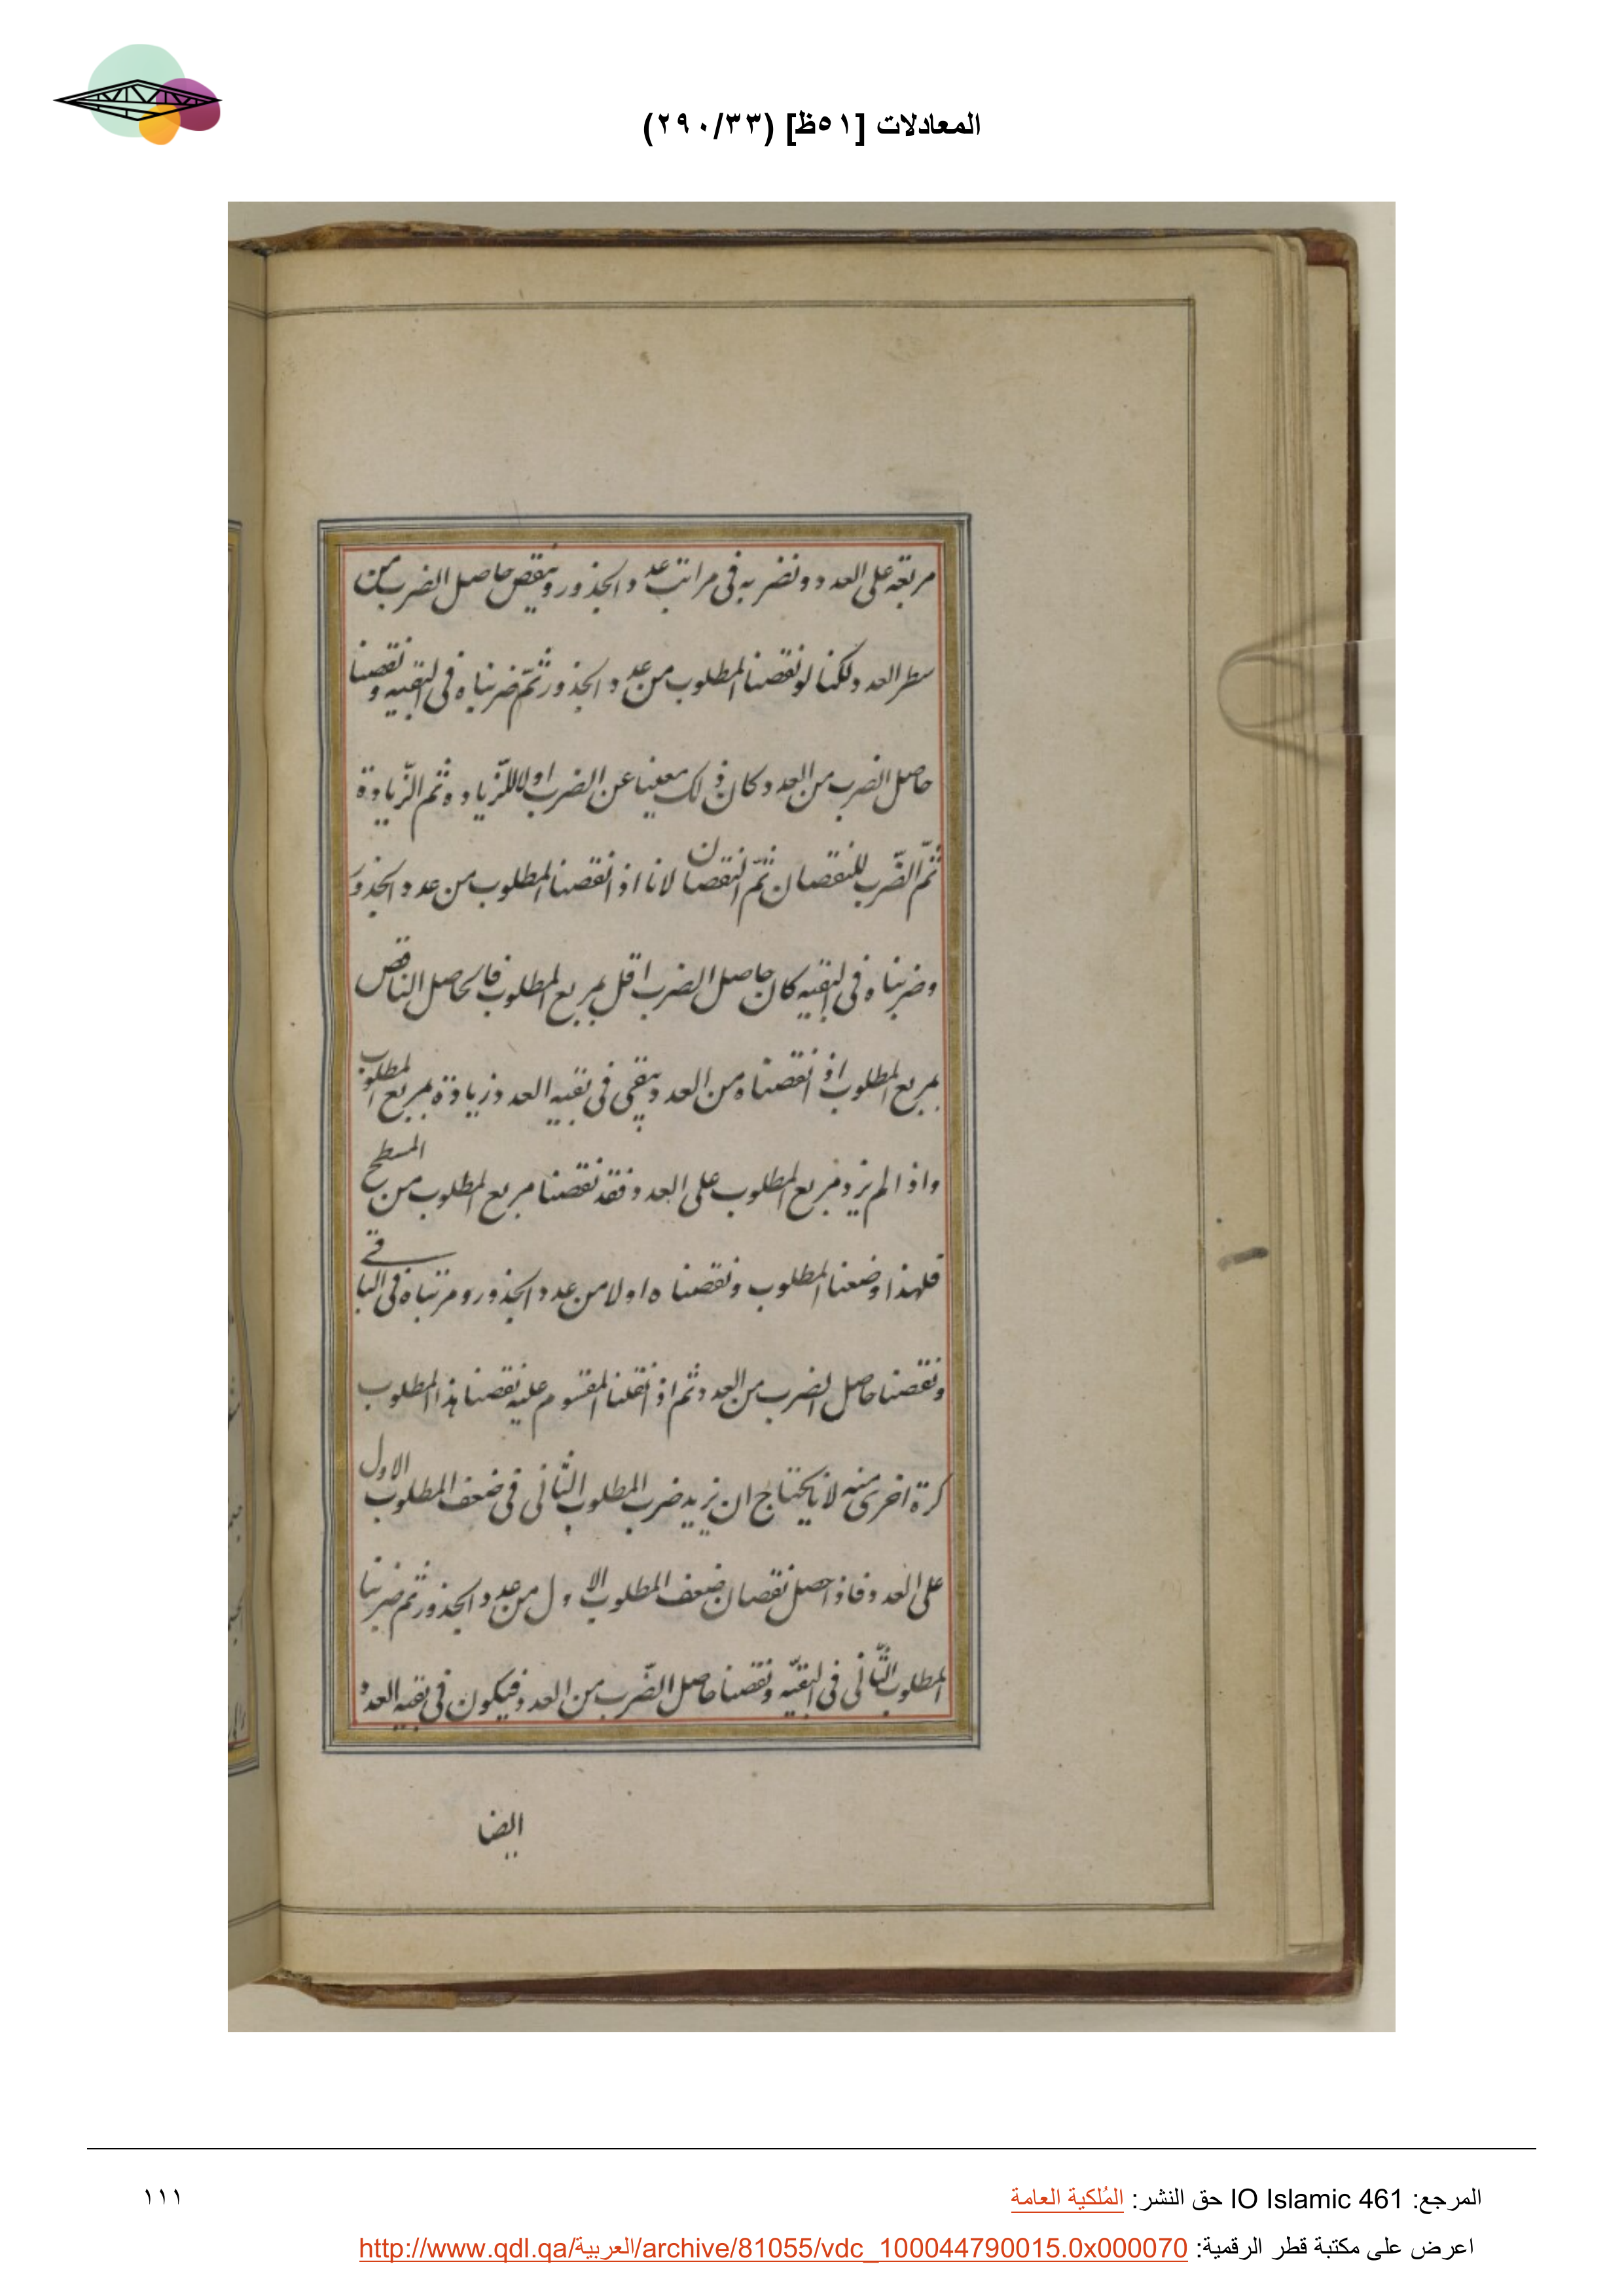 المعادلات [٥١ظ] (٢٩٠/٣٣)
مربعه على العدد ونضربه فى مراتب عدد الجذور وينقص حاصل الضرب من
سطر العدد ولكنا لو نقصنا المطلوب من عدد الجذور ثم ضربناه فى البقيه ونقصنا
حاصل الضرب من العدد كان ذلك مغنيا عن الضرب اولا للزيادة ثم الزيادة
ثم الضرب للنقصان ثم النقصان لانا اذا نقصنا المطلوب من عدد الجذور
وضربناه فى البقيه كان حاصل الضرب اقل بمربع المطلوب فالحاصل الناقص
بمربع المطلوب اذا نقصناه من العدد يبقى فى بقيه العدد زيادة بمربع المطلوب
واذا لم يزد مربع المطلوب على العدد فقد نقصنا مربع المطلوب من المسطح
فلهذا وضعنا المطلوب ونقصناه اولا من عدد الجذور و ضربناه فى الباقى
ونقصنا حاصل الضرب من العدد ثم اذا نقلنا المقسوم عليه نقصنا هذا المطلوب
كرة اخرى منه لانا يحتاج ان يزيد ضرب المطلوب الثانى فى ضعف المطلوب الاول
على العدد فاذا حصل نقصان ضعف المطلوب الاول من عدد الجذور ثم ضربنا
المطلوب الثانى فى البقيه ونقصنا حاصل الضرب من العدد فيكون فى بقيه العدد
ايضا
المرجع: IO Islamic 461 حق النشر: المُلكية العامة
١١١
اعرض على مكتبة قطر الرقمية: http://www.qdl.qa/العربية/archive/81055/vdc_100044790015.0x000070